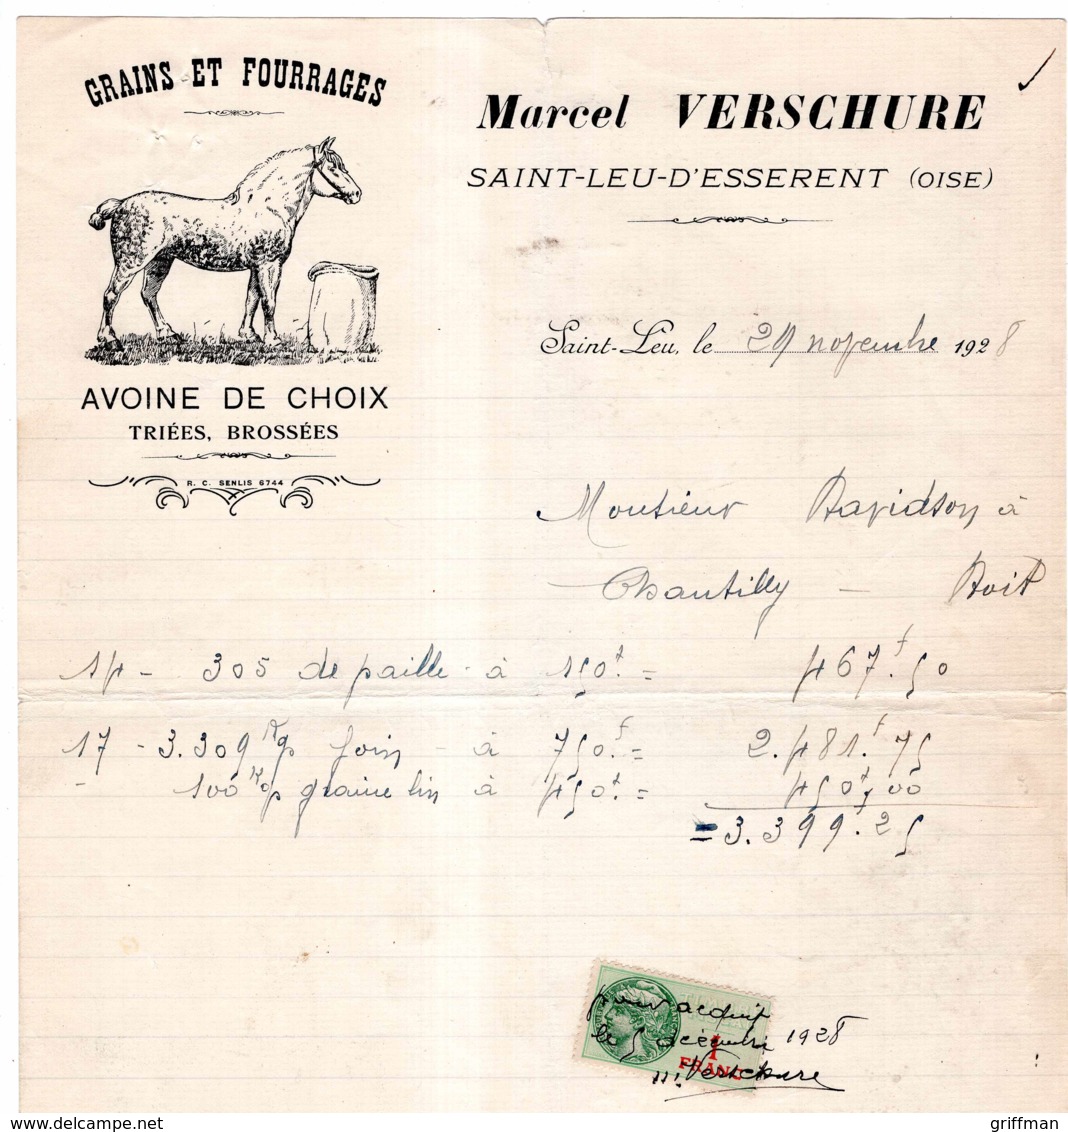 GRAINS ET FOURRAGES
AVOINE DE CHOIX
TRIÉES, BROSSÉES
R. C. SENLIS 6744
Marcel VERSCHURE
SAINT-LEU-D'ESSERENT (OISE)
Saint-Leu, le 29 novembre 1928
Monsieur Davidson à
Chantilly — Doit
14 - 305 de paille - à 150f. = 467f.50
17 - 3.309 Kgs foin - à 750.f = 2.481.f75
- 100 Kgs graine lin à 450f. = 450f00
= 3.399f.25
pour acquit
le 5 décembre 1928
M. Verschure
1
FRANC
griffman